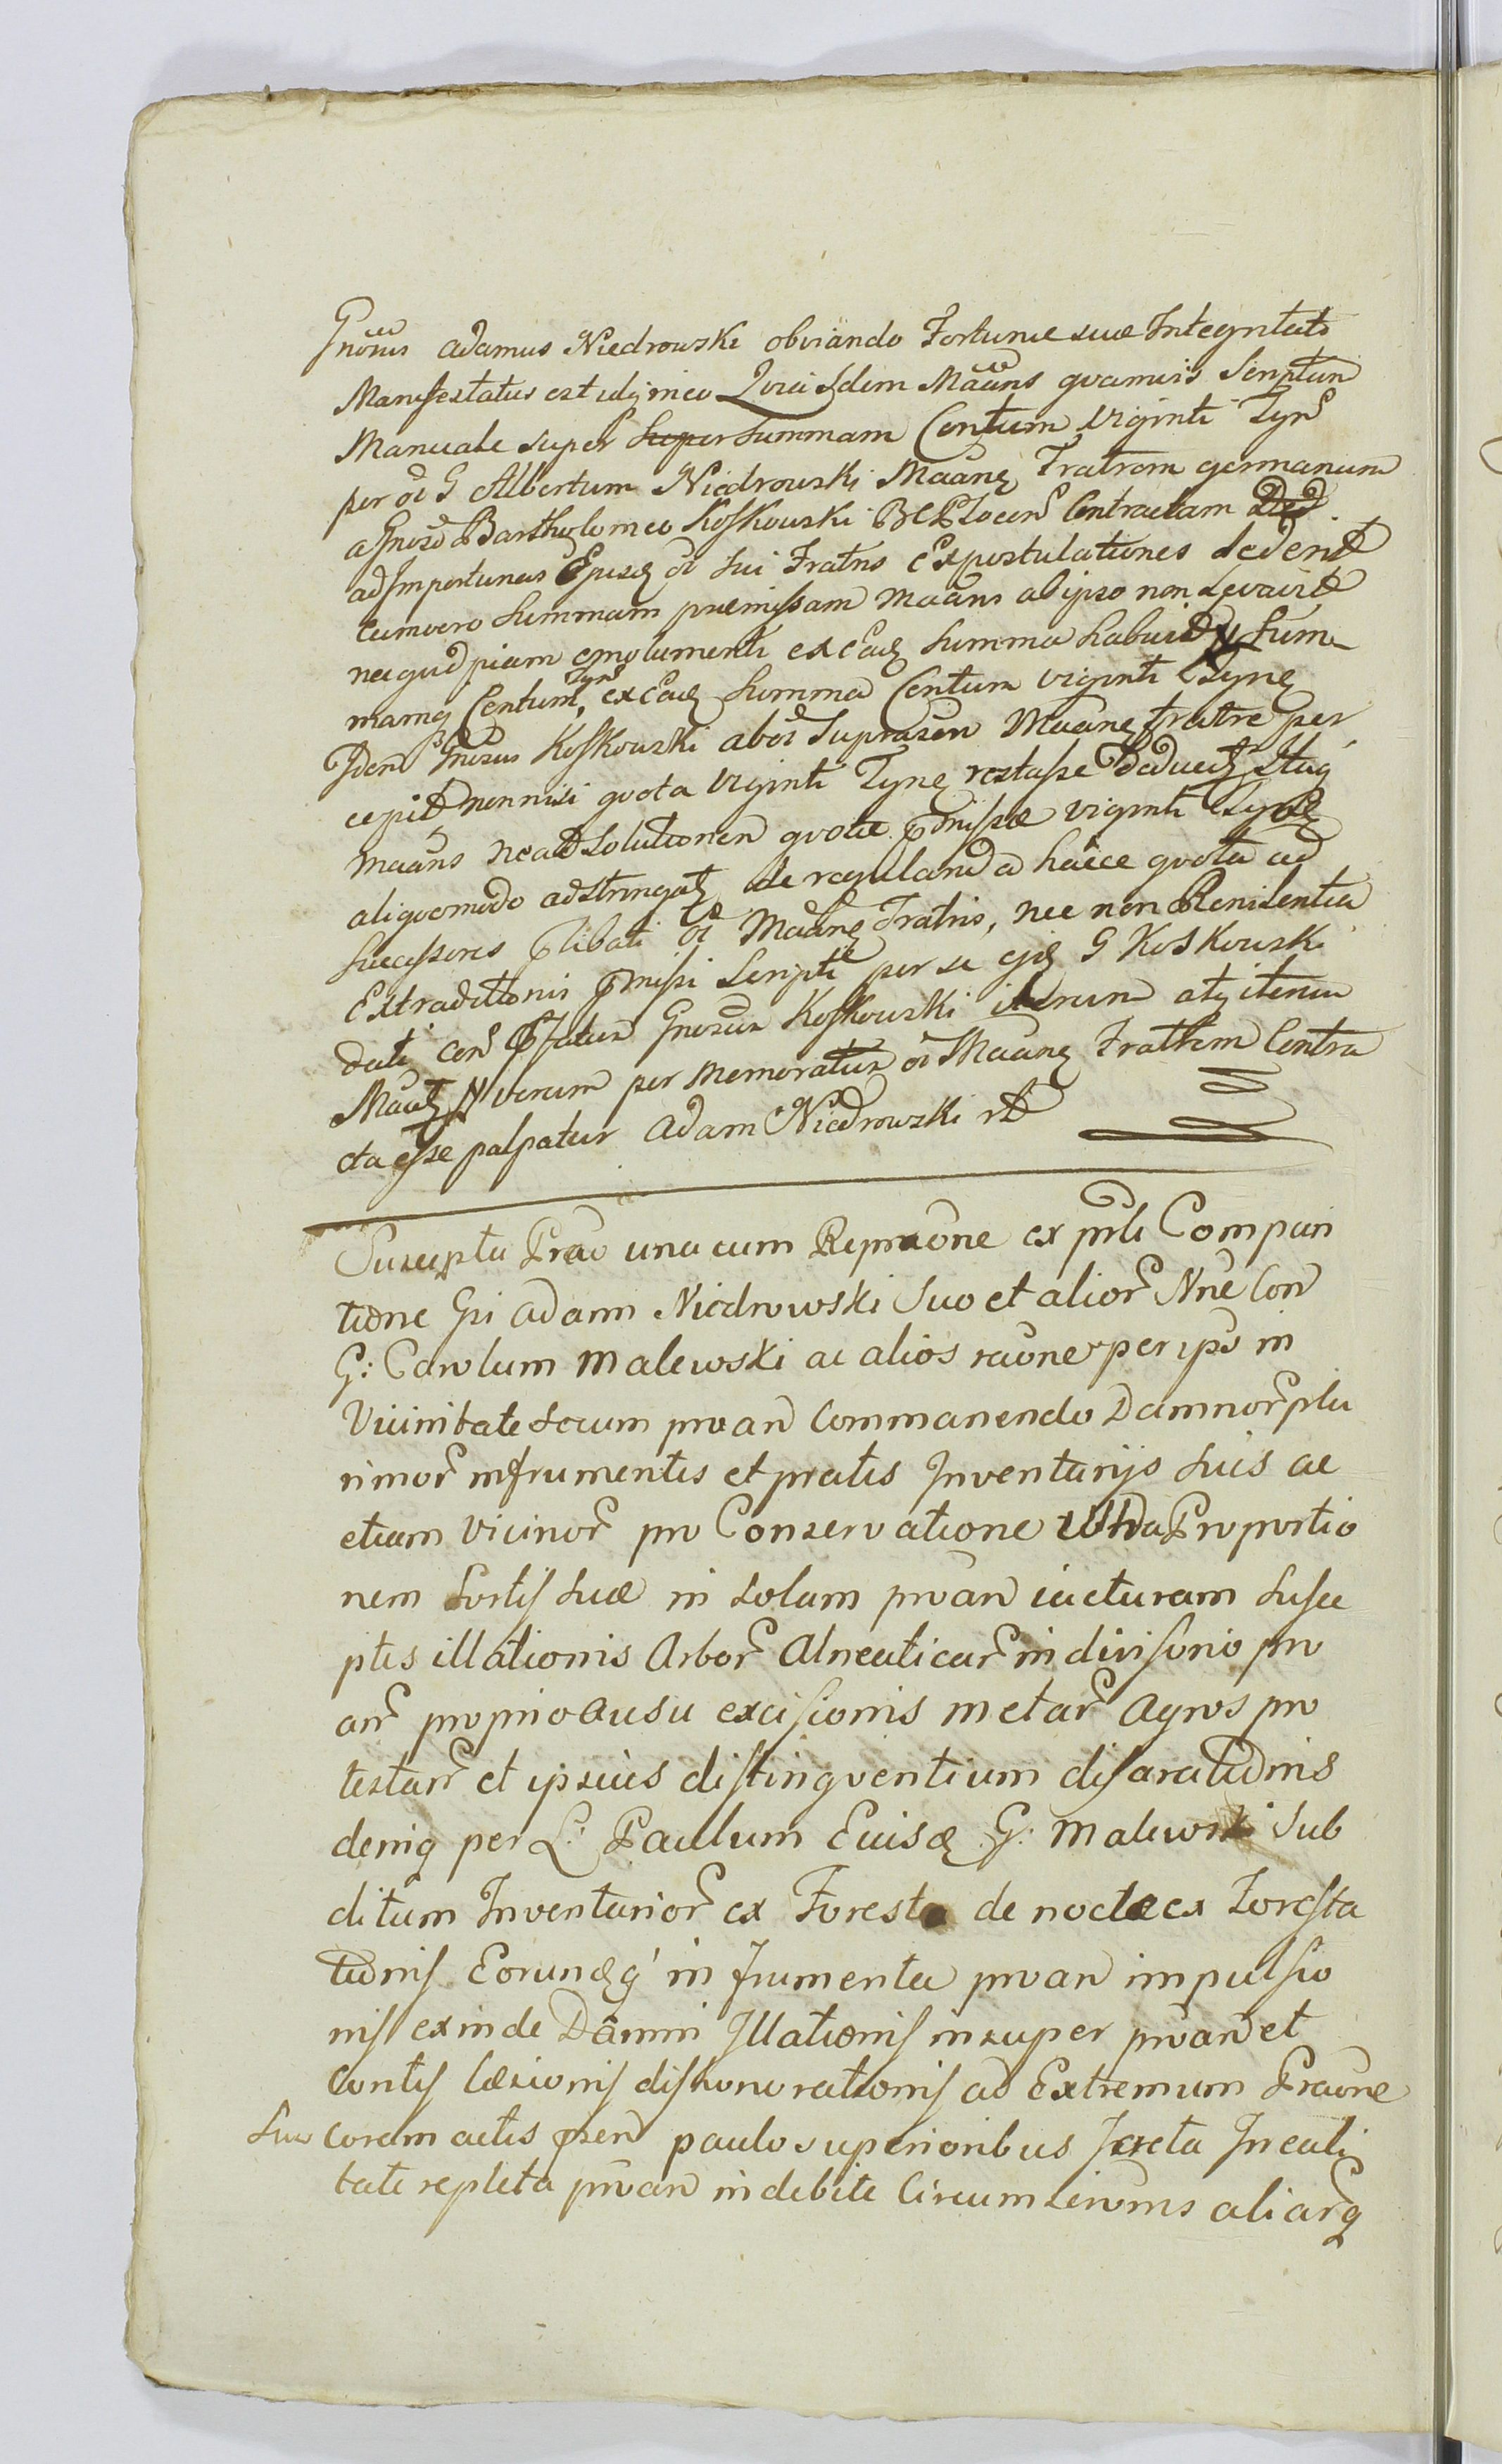 Gnosus Adamus Niedrowski obviando Fortunæ suæ Integritati
Manifestatus est idq in eo Quia Idem Maans quamvis Scriptum
Manuale super Summam Centum Viginti Tynf
per oi G Albertum Niedrowski Maane Fratrem germanum
a Gnoso Bartholomeo Koskowski BCPLocen Contractam
ad Importunas Ejusd oi sui Fratris Expostulationes dederit
cum vero Summam præmissam Maans ab ipso non Levavit
nec quidpiam emolumenti ex ead Summa habuit Sum
mamq Centum Tynf, ex ead Summa Centum viginti Tynf
Idem Gnosus Koskowski ab oi Suprascri Maane fratre per
cepit nonnisi quota viginti Tynf restasse Itaq
Maans ne ad Solutionem quotæ pmissæ viginti Tynf
aliquomodo adstringatr de regulanda hacce quota ad
Successores plibati oi Maane Fratris, nec non Renitentia
Extraditionis pmissi Scripti per se ejd G Koskowski
dati con pfatum Gnosum Koskowski iterum atq iterum
Maatr verum per memoratum oi Maane Fratrem Contra
cta esse palpatur Adam Niedrowski
Suscepta Prao una cum Repraone ex psli Compari
tione Gsi Adami Niedrowski Suo et alior Nne Con
G: Carolum Malewski ac alios raone per ipsu in
Vicinitate secum proan Commanendo Damnor plu
rimor in frumentis et pratis Inventarijs suis ac
etiam vicinor pro Conservatione ultra Proportio
nem Sortis suæ in solam proan iacturam susce
ptis illationis Arbor Alneaticar in divisorio pro
an proprio ausu excisionis metar agros pro
testan et ipsius distingventium disarationis
deniq per L: Paulum Euisd G: Malewski Sub
ditum Inventarior ex Foresta de nocte ex Foresta
tionis Eorundq in frumenta proan impulsio
nis exinde Damni Illationis insuper proan et
Contis læsionis dishonorationis ad Extremum Praone
Suu coram actis psen paulo superioribus Icta In eali
tate repleta proan indebite Circumscrionis aliarq